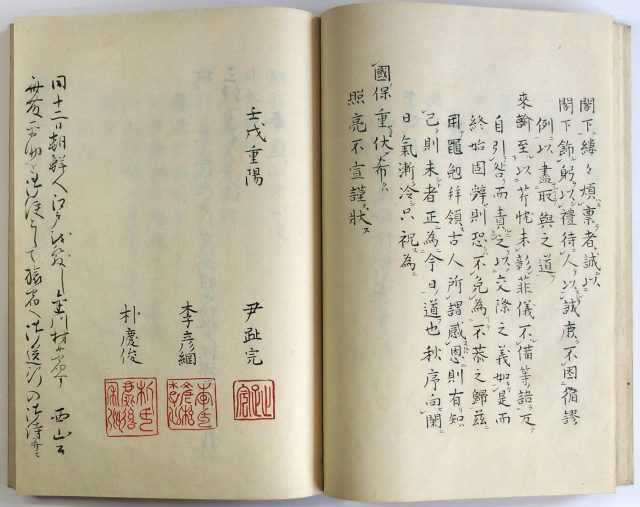 閣下縷々煩稟者誠以
閣下飾躬以禮待人以誠庻不因循謬
例以盡取與之道
來諭至以芹忱未彰菲儀不備等語反
自引咎而責之以交際之義如是而
終始固辞則恐不免為不恭之歸茲
用黽勉拜領古人所謂感恩則有知
己則未者正為今日道也秋序向闌
日氣漸冷只祝為
國保重伏希
照亮不宣謹狀
壬戌重陽
尹趾完
李彦綱
朴慶俊
同十二日朝鮮人江戸 西山公